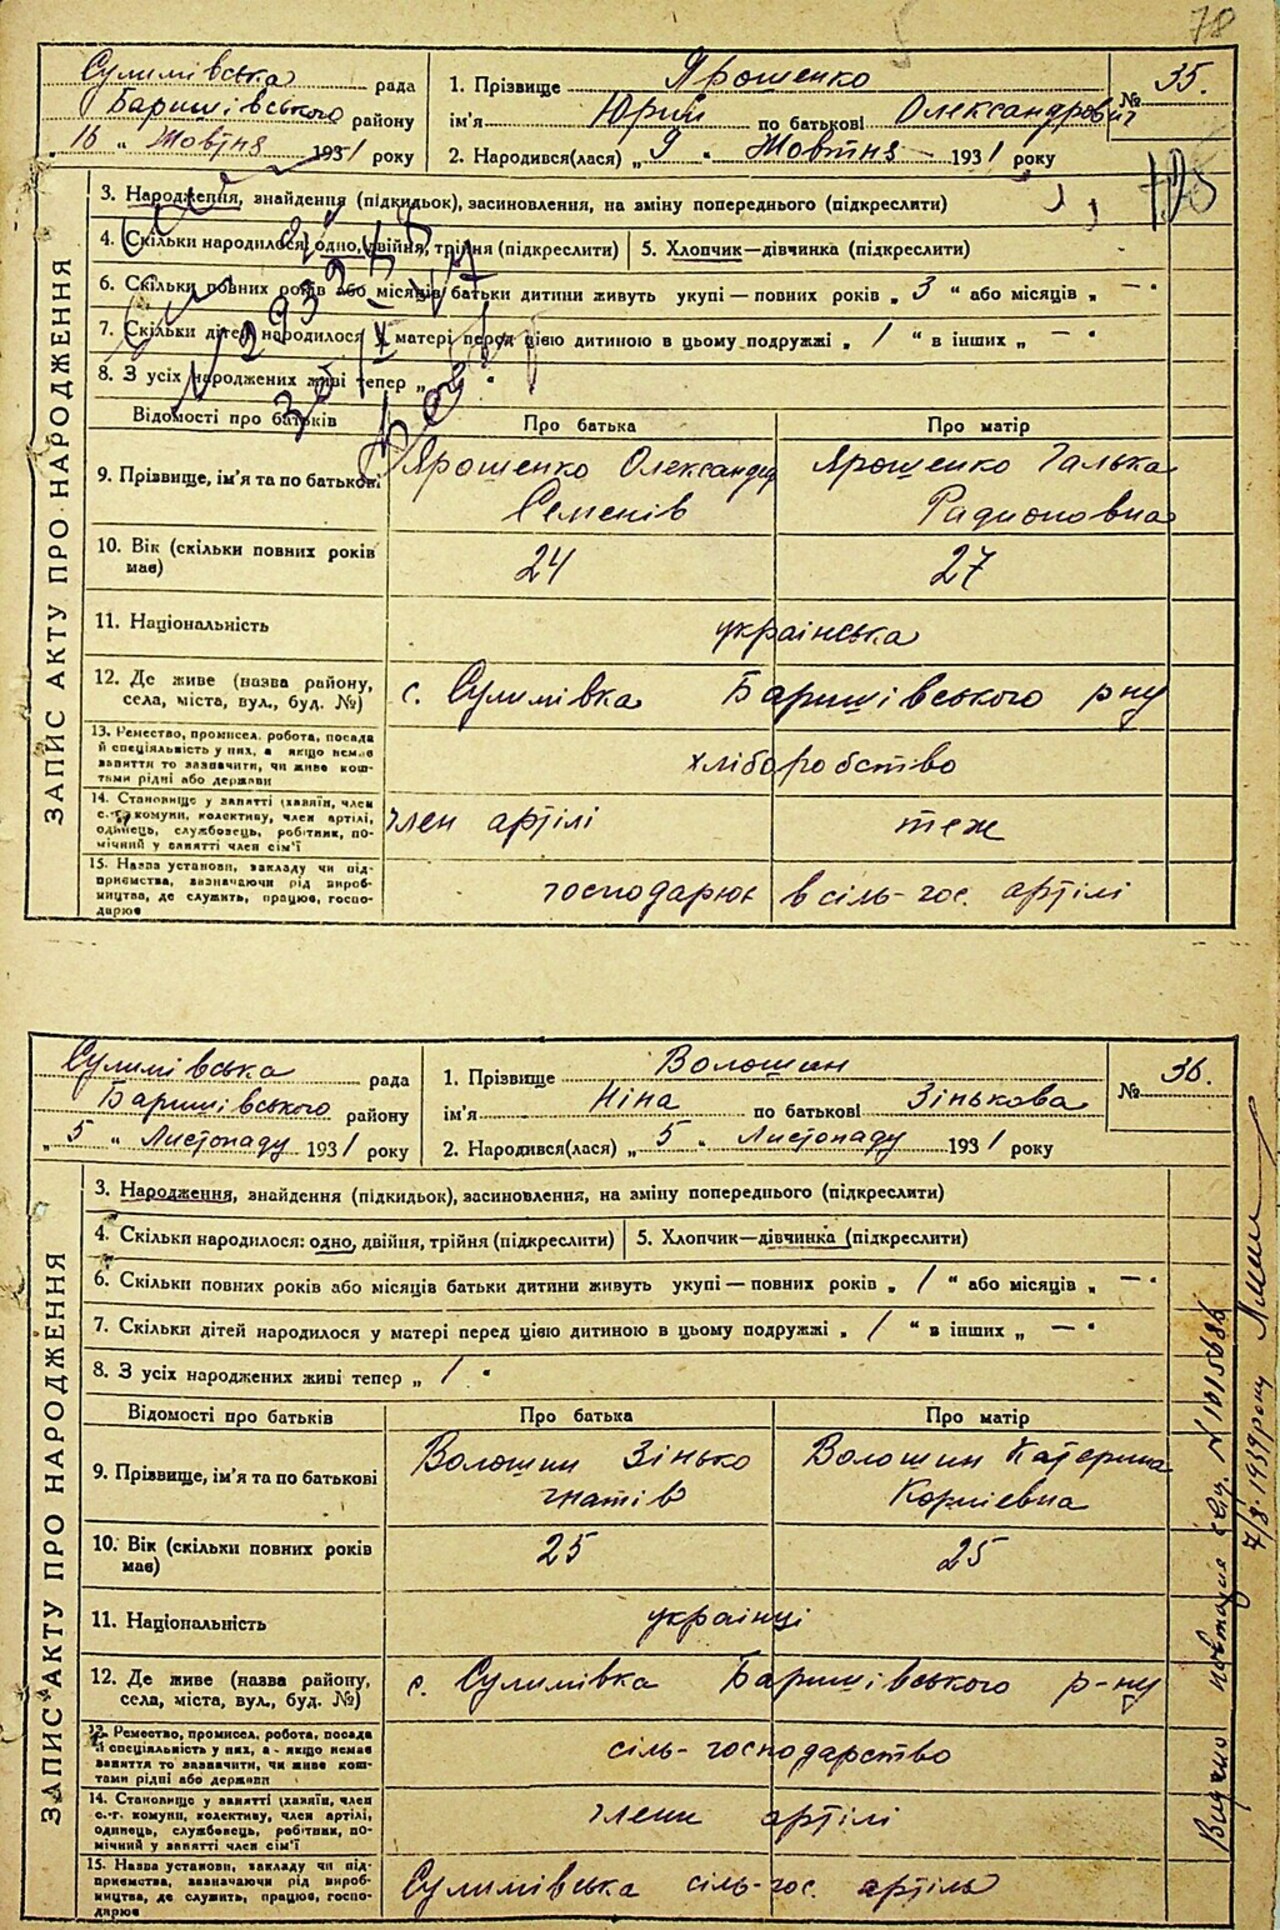 78
Сулимівська рада
Баришівського району
„ 16 “ Жовтня 1931 року
1. Прізвище Ярошенко
ім'я Юрий по батькові Олександрович
2. Народився(лася) „ 9 “ Жовтня 1931 року
№ 35.
ЗАПИС АКТУ ПРО НАРОДЖЕННЯ
3. Народження, знайдення (підкидьок), засиновлення, на зміну попереднього (підкреслити)
4. Скільки народилося: одно, двійня, трійня (підкреслити) 5. Хлопчик—дівчинка (підкреслити)
6. Скільки повних років або місяців батьки дитини живуть укупі — повних років „ 3 “ або місяців „ — “
7. Скільки дітей народилося у матері перед цією дитиною в цьому подружжі „ 1 “ в інших „ — “
8. З усіх народжених живі тепер „
Відомості про батьків Про батька Про матір
9. Прізвище, ім'я та по батькові Ярошенко Олександр Ярошенко Галька
Семенів Радионовна
10. Вік (скільки повних років 24 27
має)
11. Національність українська
12. Де живе (назва району, с. Сулимівка Баришівського р-ну
села, міста, вул., буд. №)
13. Ремество, промисел, робота, посада
й спеціяльність у них, а якщо немає хліборобство
заняття то зазначити, чи живе кош-
тами рідні або держави
14. Становище у занятті (хазяїн, член
с.-г. комуни, колективу, член артілі, член артілі теж
одинець, службовець, робітник, по-
мічний у занятті член сім'ї
15. Назва установи, закладу чи під-
приємства, зазначаючи рід вироб- господарює в сіль-гос. артілі
ництва, де служить, працює, госпо-
дарює
Сулимівська рада
Баришівського району
„ 5 “ Листопаду 1931 року
1. Прізвище Волошин
ім'я Ніна по батькові Зінькова
2. Народився(лася) „ 5 “ Листопаду 1931 року
№ 36.
ЗАПИС АКТУ ПРО НАРОДЖЕННЯ
3. Народження, знайдення (підкидьок), засиновлення, на зміну попереднього (підкреслити)
4. Скільки народилося: одно, двійня, трійня (підкреслити) 5. Хлопчик—дівчинка (підкреслити)
6. Скільки повних років або місяців батьки дитини живуть укупі — повних років „ 1 “ або місяців „ — “
7. Скільки дітей народилося у матері перед цією дитиною в цьому подружжі „ 1 “ в інших „ — “
8. З усіх народжених живі тепер „ 1 “
Відомості про батьків Про батька Про матір
9. Прізвище, ім'я та по батькові Волошин Зінько Волошин Катерина
гнатів Корніевна
10. Вік (скільки повних років 25 25
має)
11. Національність українці
12. Де живе (назва району, с. Сулимівка Баришівського р-ну
села, міста, вул., буд. №)
13. Ремество, промисел, робота, посада
й спеціяльність у них, а якщо немає сіль-господарство
заняття то зазначити, чи живе кош-
тами рідні або держави
14. Становище у занятті (хазяїн, член
с.-г. комуни, колективу, член артілі, члени артілі
одинець, службовець, робітник, по-
мічний у занятті член сім'ї
15. Назва установи, закладу чи під-
приємства, зазначаючи рід вироб- Сулимівська сіль-гос. артіль
ництва, де служить, працює, госпо-
дарює
Видано повторне свід. N 1015686
7/8. 1939 року